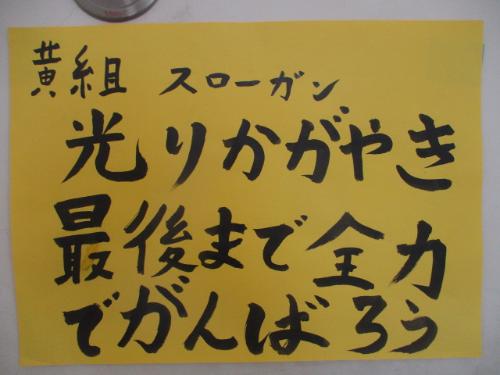 黄組 スローガン
光りかがやき
最後まで全力
でがんばろう